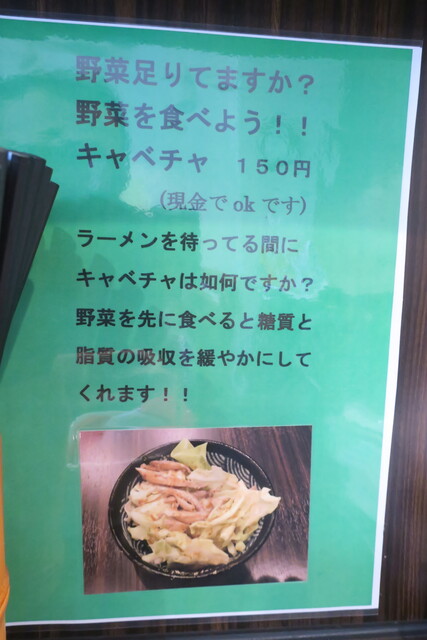 野菜足りてますか？
野菜を食べよう！！
キャベチャ　１５０円
(現金でokです)
ラーメンを待ってる間に
キャベチャは如何ですか？
野菜を先に食べると糖質と
脂質の吸収を緩やかにして
くれます！！